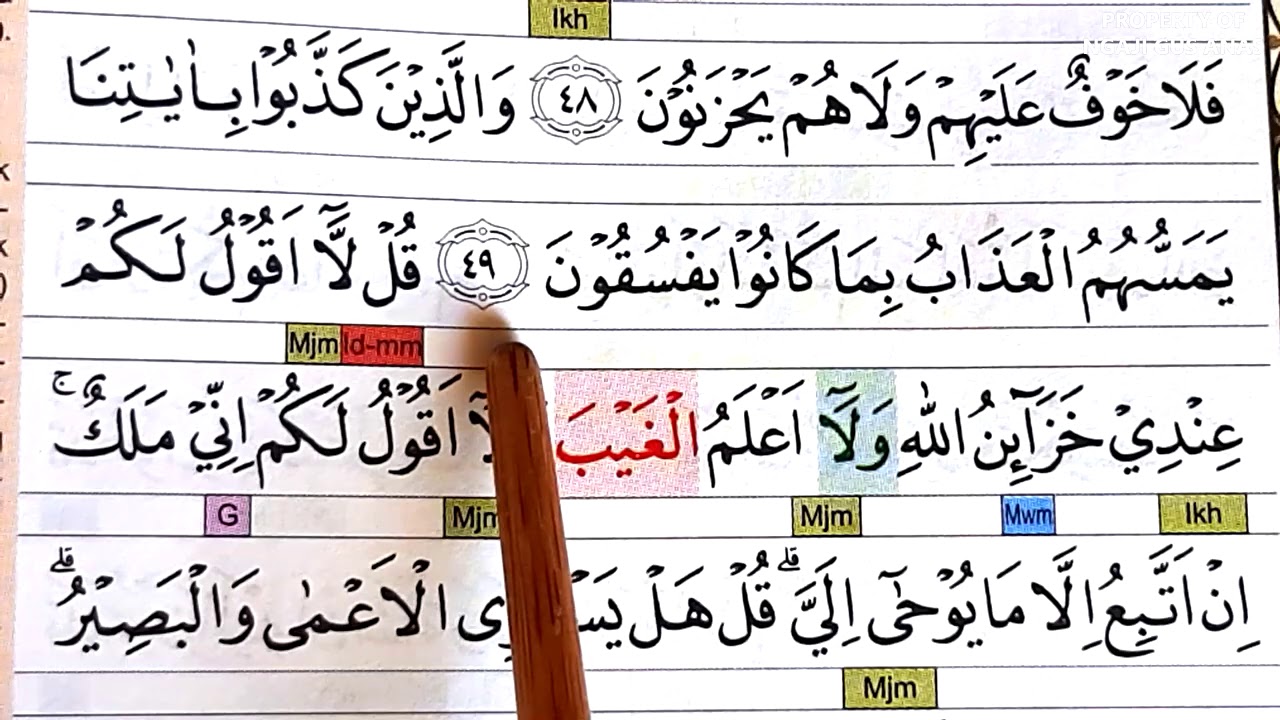 Ikh
PROPERTY OF
NGAJI GUS ANA
فَلَا خَوْفٌ عَلَيْهِمْ وَلَا هُمْ يَحْزَنُوْنَ ٤٨ وَالَّذِيْنَ كَذَّبُوْا بِاٰيٰتِنَا
يَمَسُّهُمُ الْعَذَابُ بِمَا كَانُوْا يَفْسُقُوْنَ ٤٩ قُلْ لَّآ اَقُوْلُ لَكُمْ
Mjm Id-mm
عِنْدِيْ خَزَآىِٕنُ اللّٰهِ وَلَآ اَعْلَمُ الْغَيْبَ اَقُوْلُ لَكُمْ اِنِّيْ مَلَكٌۚ
G Mjm Mwm Ikh
اِنْ اَتَّبِعُ اِلَّا مَا يُوْحٰٓى اِلَيَّۗ قُلْ هَلْ الْاَعْمٰى وَالْبَصِيْرُۗ
Mjm